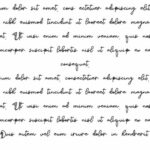 dolor sit amet, cons ectetuer adipiscing elit
nibh euismod tincidunt ut laoreet dolore magna
erat. Ut wisi enim ad minim veniam, quis nost
ullamcorper suscipit lobortis nisl ut aliquip ex
consequat
dolor sit amet, consectetuer adipiscing elit,
nibh euismod tincidunt ut laoreet dolore magna
erat. Ut wisi enim ad minim veniam, quis
ullamcorper suscipit lobortis nisl ut aliquip ex ea
Duis autem vel eum iriure dolor in hendrerit